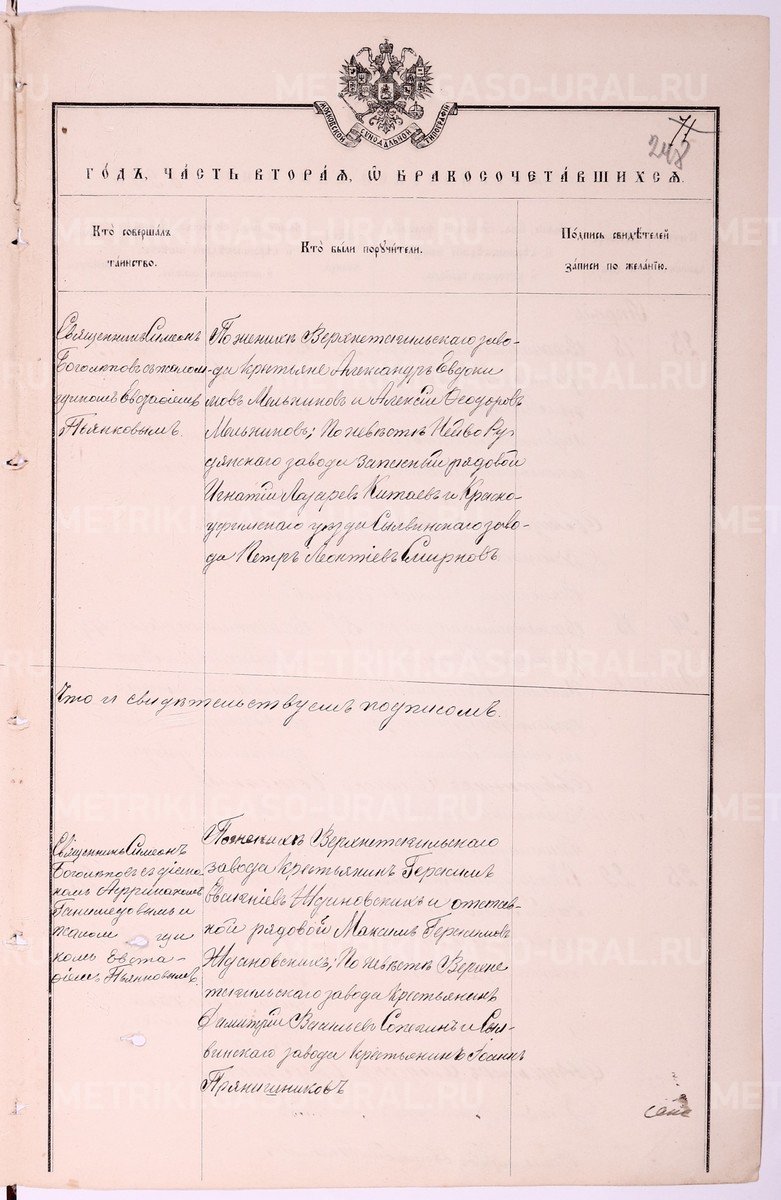 МОСКОВСКОЙ СѴНОДАЛЬНОЙ ТИПОГРАФІИ
71
248
ГО́ДЪ, ЧА́СТЬ ВТОРА́Я, Ѿ БРАКОСОЧЕТА́ВШИХСЯ.
Кто̀ соверша́лъ
та́инство.
Кто̀ бы́ли порꙋчи́тели.
По́дпись свидѣ́телей
за́писи по жела́нїю.
Священникъ Симеонъ
Боголѣповъ съ псалом-
щикомъ Евстафіемъ
Пьянковымъ.
По женихѣ Верхнетагильскаго заво-
да крестьяне Александръ Евдоки
мовъ Мельниковъ и Алексій Ѳеодоровъ
Мельниковъ; по невѣстѣ Нейво Ру-
дянскаго завода запасный рядовой
Игнатій Лазаревъ Китаевъ и Красно-
уфимскаго уѣзда Сылвинскаго заво-
да Петръ Леонтіевъ Смирновъ.
Что и свидѣтельствуемъ подписомъ.
Священникъ Симеонъ
Боголѣповъ съ діако-
номъ Африканомъ
Ганимедовымъ и
псаломщи
комъ Евста-
фіемъ Пьянковымъ.
По женихѣ Верхнетагильскаго
завода крестьянинъ Герасимъ
Евгеніевъ Ждановскихъ и отстав-
ной рядовой Максимъ Герасимовъ
Ждановскихъ; по невѣстѣ Верхне
тагильскаго завода крестьянинъ
Димитрій Васильевъ и Сыл-
винскаго завода крестьянинъ Іоаннъ
Прянишниковъ
METRIKI.GASO-URAL.RU